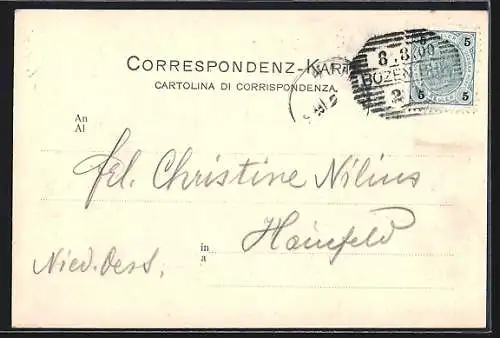 CORRESPONDENZ-KART
CARTOLINA DI CORRISPONDENZA.
5 5
8.3.00
BOZEN
2
5 5
An
Al
Frl. Christine Nilius
in
a
Hainfeld
Nied. Oest.